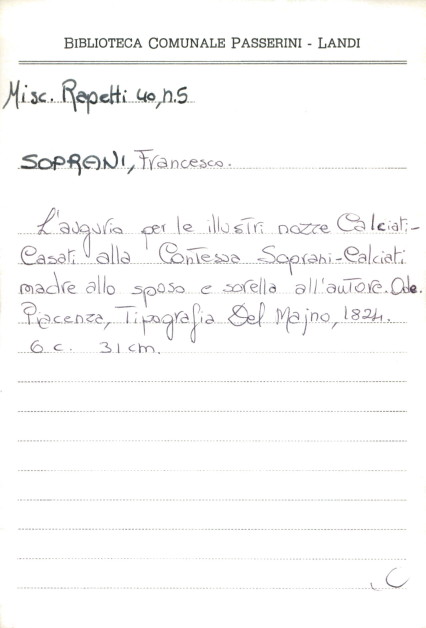 BIBLIOTECA COMUNALE PASSERINI - LANDI
Misc. Rapetti 40, n.5
SOPRANI, Francesco.
L'augurio per le illustri nozze Calciati-
Casati alla Contessa Soprani-Calciati
madre allo sposo e sorella all'autore. Ode.
Piacenza, Tipografia Del Majno, 1824.
6 c. 31 cm.
C